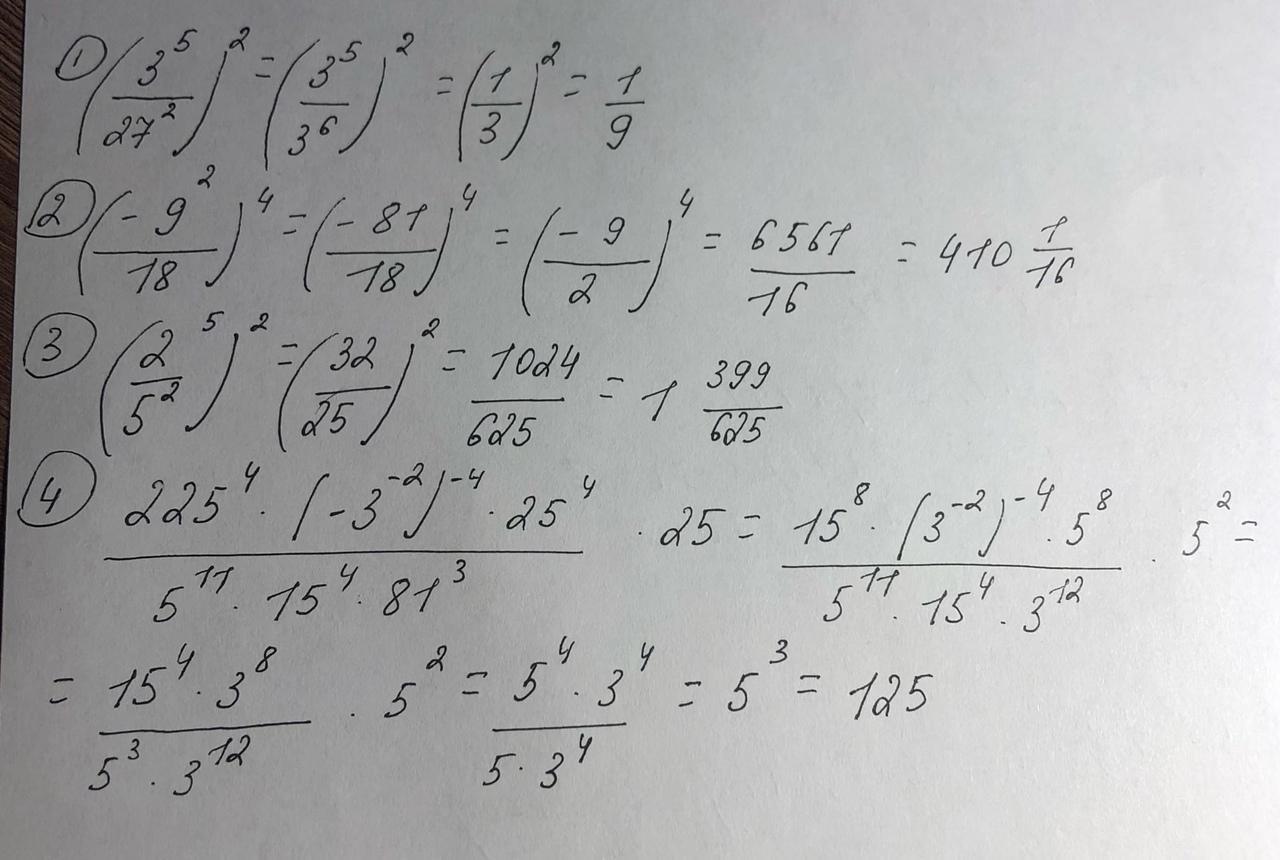 ① (3^5/27^2)^2 = (3^5/3^6)^2 = (1/3)^2 = 1/9
② (-9^2/18)^4 = (-81/18)^4 = (-9/2)^4 = 6561/16 = 410 1/16
③ (2^5/5^2)^2 = (32/25)^2 = 1024/625 = 1 399/625
④ (225^4 · (-3^-2)^-4 · 25^4)/(5^11 · 15^4 · 81^3) · 25 = (15^8 · (3^-2)^-4 · 5^8)/(5^11 · 15^4 · 3^12) · 5^2 =
= (15^4 · 3^8)/(5^3 · 3^12) · 5^2 = (5^4 · 3^4)/(5 · 3^4) = 5^3 = 125